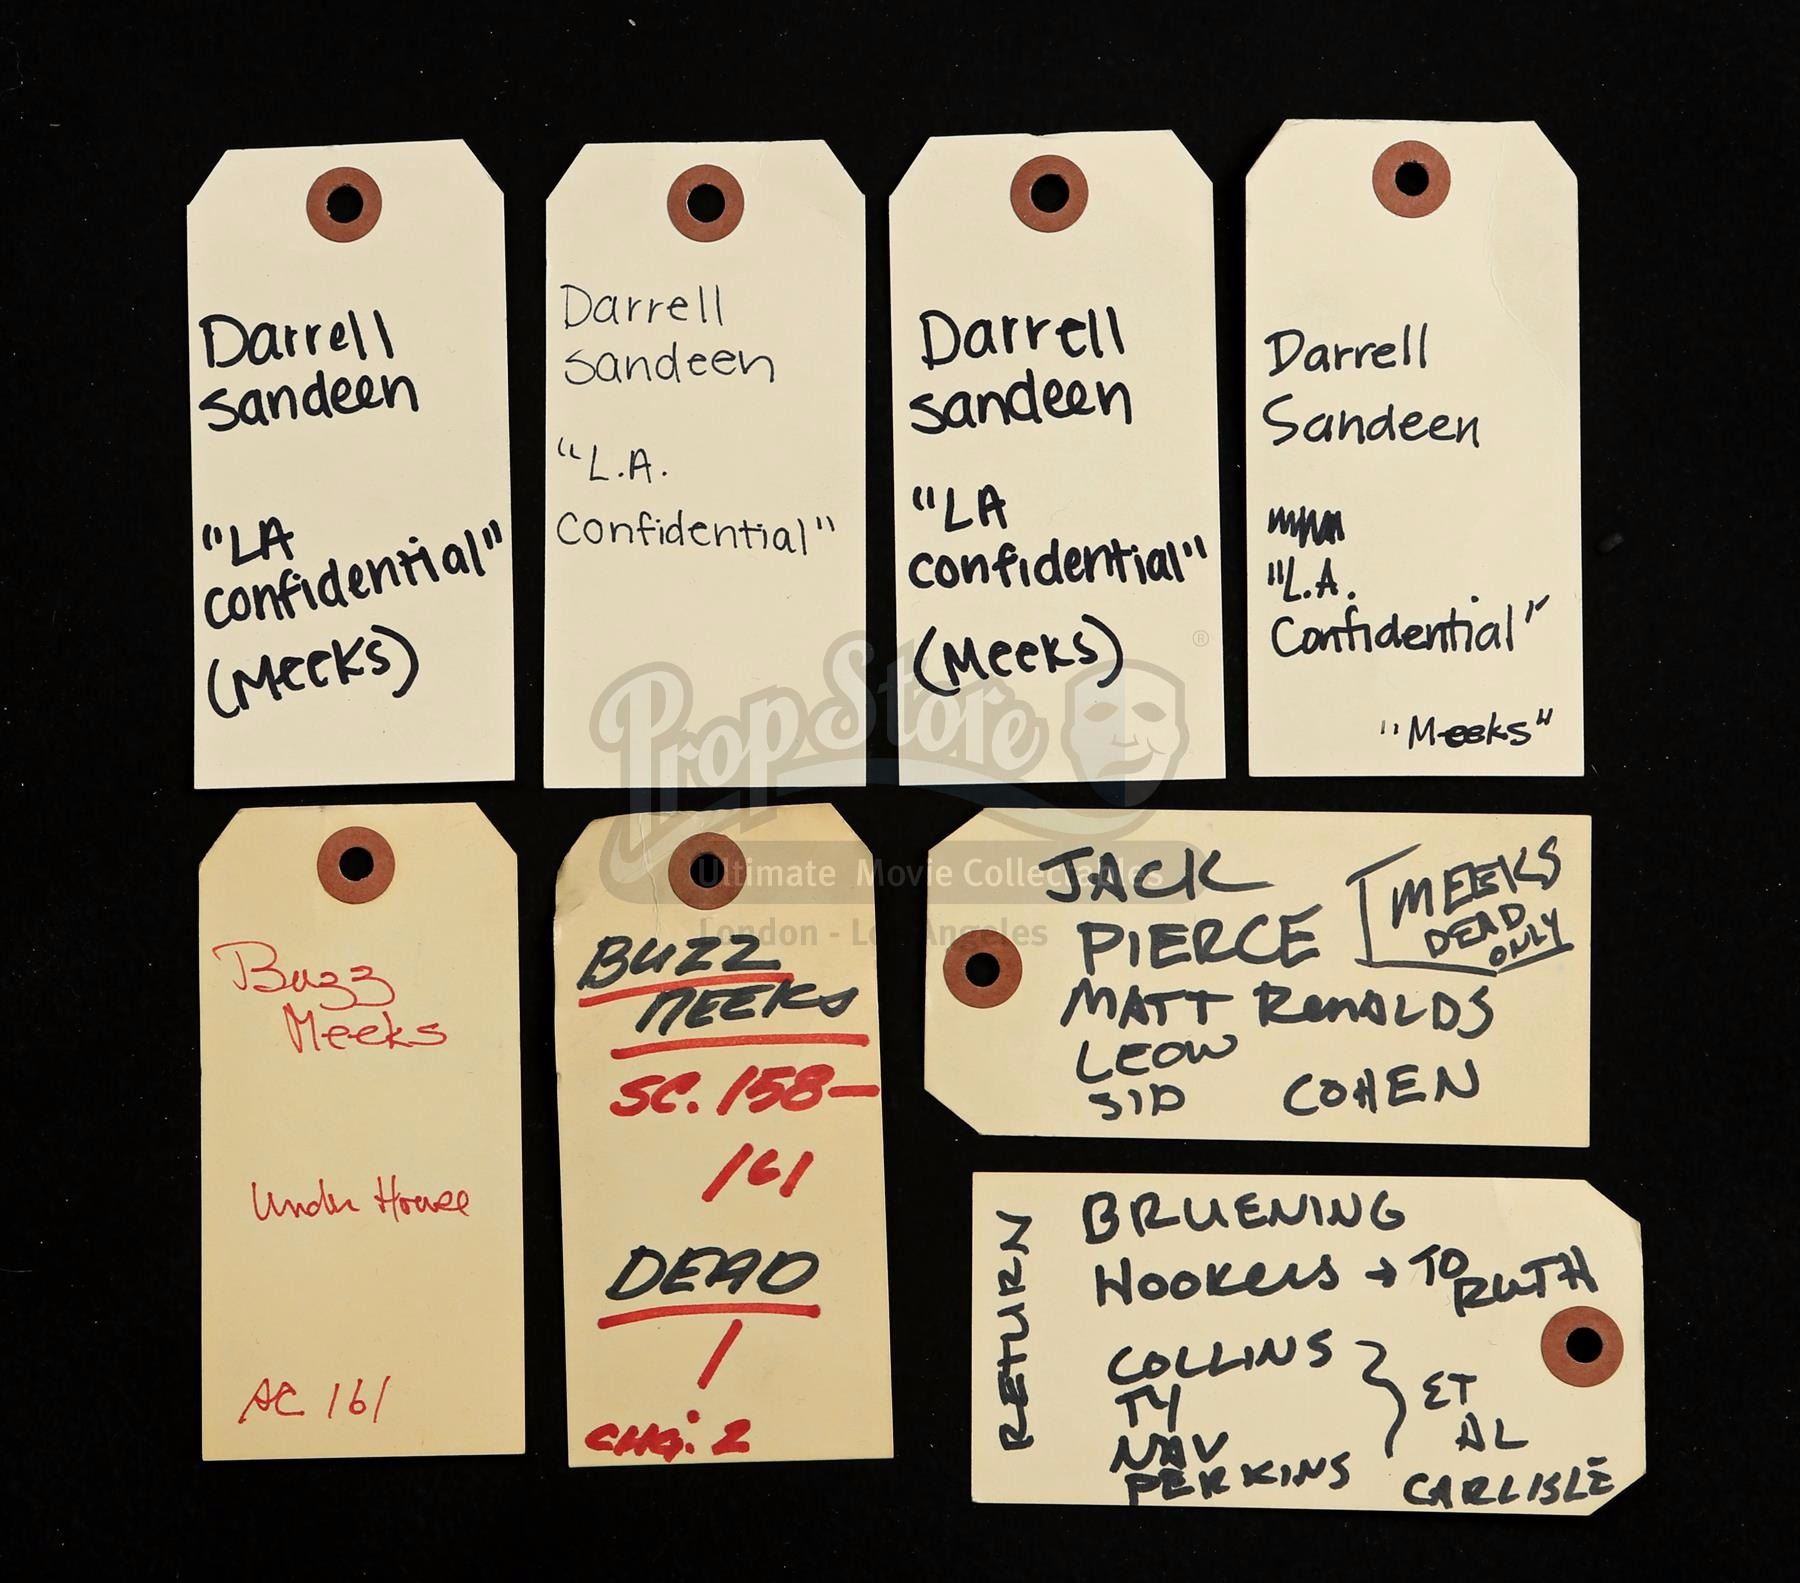 Darrell
Sandeen
"LA
Confidential"
(Meeks)
Darrell
Sandeen
"L.A.
Confidential"
Darrell
Sandeen
"LA
Confidential"
(Meeks)
Darrell
Sandeen
"L.A.
Confidential"
"Meeks"
PropStore
®
Ultimate Movie Collectables
London - Los Angeles
Buzz
Meeks
Under House
161
BUZZ
MEEKS
SC. 158-
161
DEAD
1
CHG. 2
JACK
PIERCE
[MEEKS
DEAD
ONLY
MATT RENALDS
LEOW
SID COHEN
RETURN
BRUENING
HOOKERS → TO
RUTH
COLLINS
TY
NAV
PERKINS
ET
AL
CARLISLE